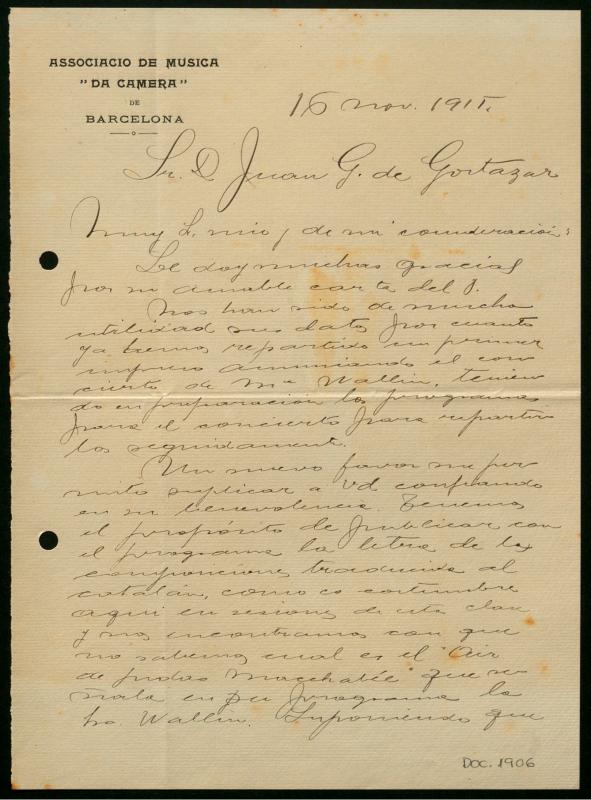 ASSOCIACIO DE MUSICA
"DA CAMERA"
DE
BARCELONA
16 nov. 1915.
Sr. D Juan G. de Gortazar
Muy S. mio y de mi consideración:
Le doy muchas gracias
por su amable carta del 8.
Nos han sido de mucha
utilidad sus datos por cuanto
ya hemos repartido un primer
impreso anunciando el con
cierto de Mme Wallin, tenien
do en preparación los programas
para el concierto para repartir
los seguidamente.
Un nuevo favor me per
mito suplicar a Vd confiando
en su benevolencia. Tenemos
el propósito de publicar con
el programa la letra de las
composiciones traducida al
catalán, como es costumbre
aqui en sesiones de esta clase
y nos encontramos con que
no sabemos cual es el "Air
de Judas Macchabée" que se
ñala en su programa la
Sra. Wallin. Suponiendo que
DOC. 1906